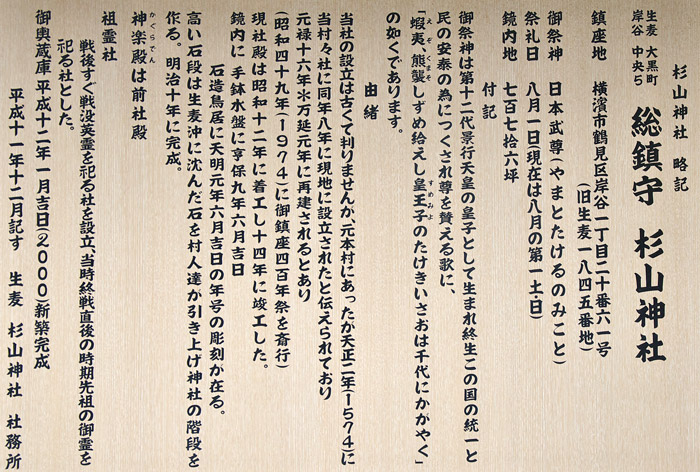 杉山神社　略記
生麦　大黒町
岸谷　中央5
総鎮守　杉山神社
鎮座地　横濱市鶴見区岸谷一丁目二十番六一号
(旧生麦一八四五番地)
御祭神　日本武尊(やまとたけるのみこと)
祭礼日　八月一日(現在は八月の第一土・日)
鏡内地　七百七十六坪
付記
御祭神は第十二代景行天皇の皇子として生まれ終生この国の統一と
民の安泰の為につくされ尊を賛える歌に、
「蝦夷、熊襲しずめ給えし皇王子のたけきいさおは千代にかがやく」
えぞ　くまそ　すめみよ
の如くであります。
由緒
当社の設立は古くて判りませんが、元本村にあったが天正二年(1574)に
当村々社に同年八年に現地に設立されたと伝えられており
元禄十六年※万延元年に再建されるとあり
(昭和四十九年(1974)に御鎮座四百年祭を斎行)
現社殿は昭和十二年に着工し十四年に竣工した。
鏡内に　手鉢水盤に享保九年六月吉日
石造鳥居に天明元年六月吉日の年号の彫刻が在る。
高い石段は生麦沖に沈んだ石を村人達が引き上げ神社の階段を
作る。明治十年に完成。
かぐらでん
神楽殿は前社殿
祖霊社
戦後すぐ戦没英霊を祀る社を設立、当時終戦直後の時期先祖の御霊を
祀る社とした。
御輿蔵庫　平成十二年一月吉日(2000)新築完成
平成十一年十二月記す　生麦　杉山神社　社務所